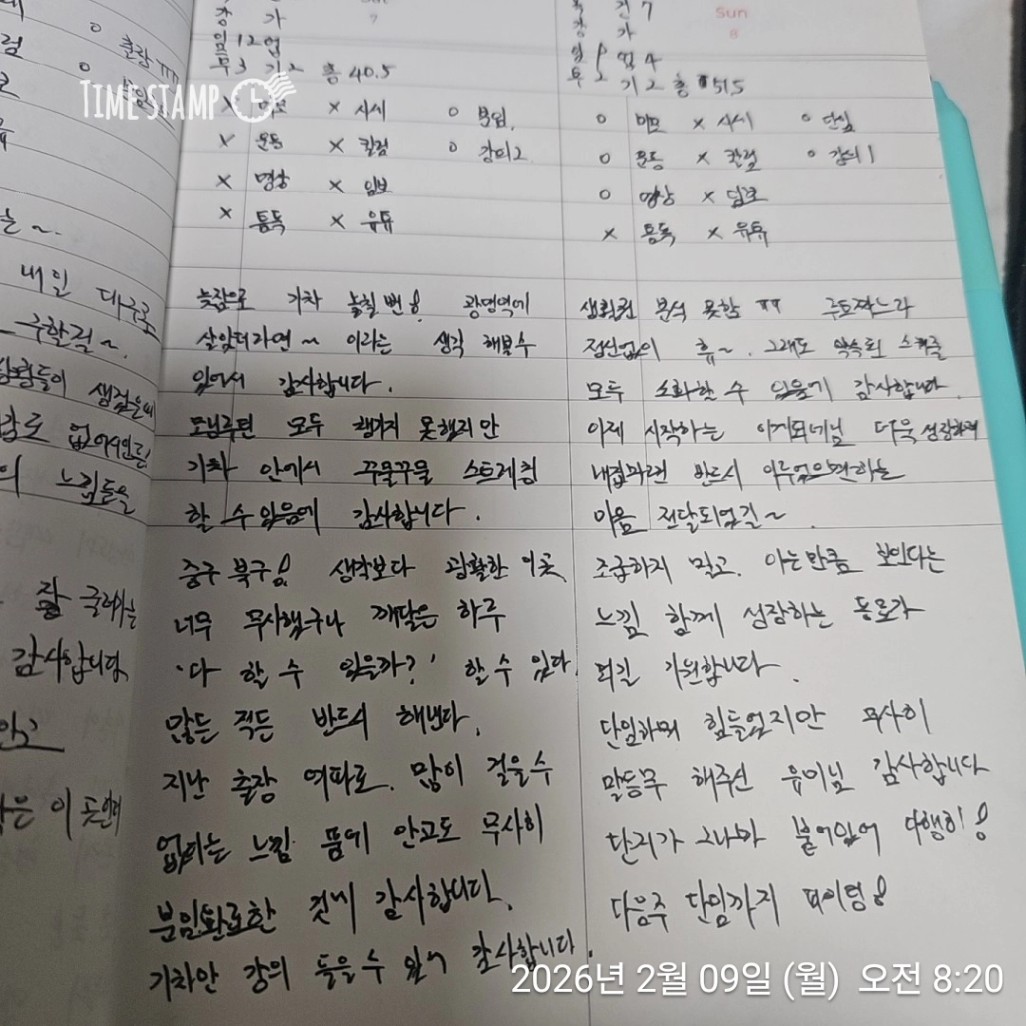 TIMESTAMP
강 가
임 12 업
투 3 기 2 총 40.5
x 미모 x 시세 o 분임
x 운동 x 칼럼 o 강의2
x 명상 x 임보
x 통독 x 유튜
늦잠으로 기차 놓칠 뻔! 광명역에
살았더라면~ 이라는 생각 해볼 수
있어서 감사합니다.
모두 챙기지 못했지만
기차 안에서 꾸물꾸물 스트레칭
할 수 있음에 감사합니다.
중구 북구! 생각보다 광활한 이곳
너무 무시했구나 깨달은 하루
'다 할 수 있을까?' 할 수 있다.
많든 적든 반드시 해낸다.
지난 출장 여파로 많이 걸을 수
없다는 느낌 품에 안고도 무사히
분임완료한 것에 감사합니다.
기차안 강의 들을 수 있어 감사합니다.
건 7 Sun
강 가 8
임 업 4
투 2 기 2 총 515
o 미모 x 시세 o 단임
o 운동 x 칼럼 o 강의1
o 명상 x 임보
x 통독 x 유튜
생활권 분석 못함 ㅠㅠ 루트짜느라
정신없이 휴~. 그래도 약속된 스케줄
모두 소화한 수 있음에 감사합니다
이제 시작하는 더욱 성장하여
내집마련 반드시 이루었으면 하는
마음 전달되었길~
조급하지 말고. 아는만큼 보인다는
느낌 함께 성장하는 동료가
되길 기원합니다.
단임하며 힘들었지만 무사히
말동무 해주신 유미님 감사합니다
단지가 그나마 붙어있어 다행히!
다음주 단임까지 파이팅!
춘장 ㅠㅠ
내일 대구로
생겼은데
없어서인듯!
의 느낌들을
잘 굴러가는
감사합니다
2026년 2월 09일 (월) 오전 8:20